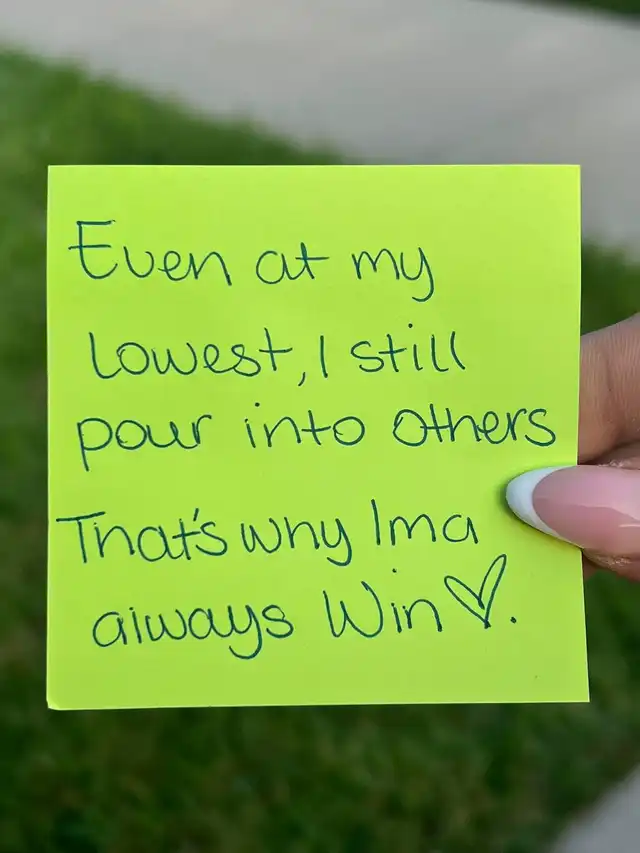 Even at my
lowest, I still
pour into others
That's why Ima
always Win ♡.